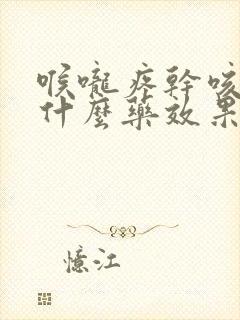 喉嚨疼幹咳
什麼藥效果
憶江